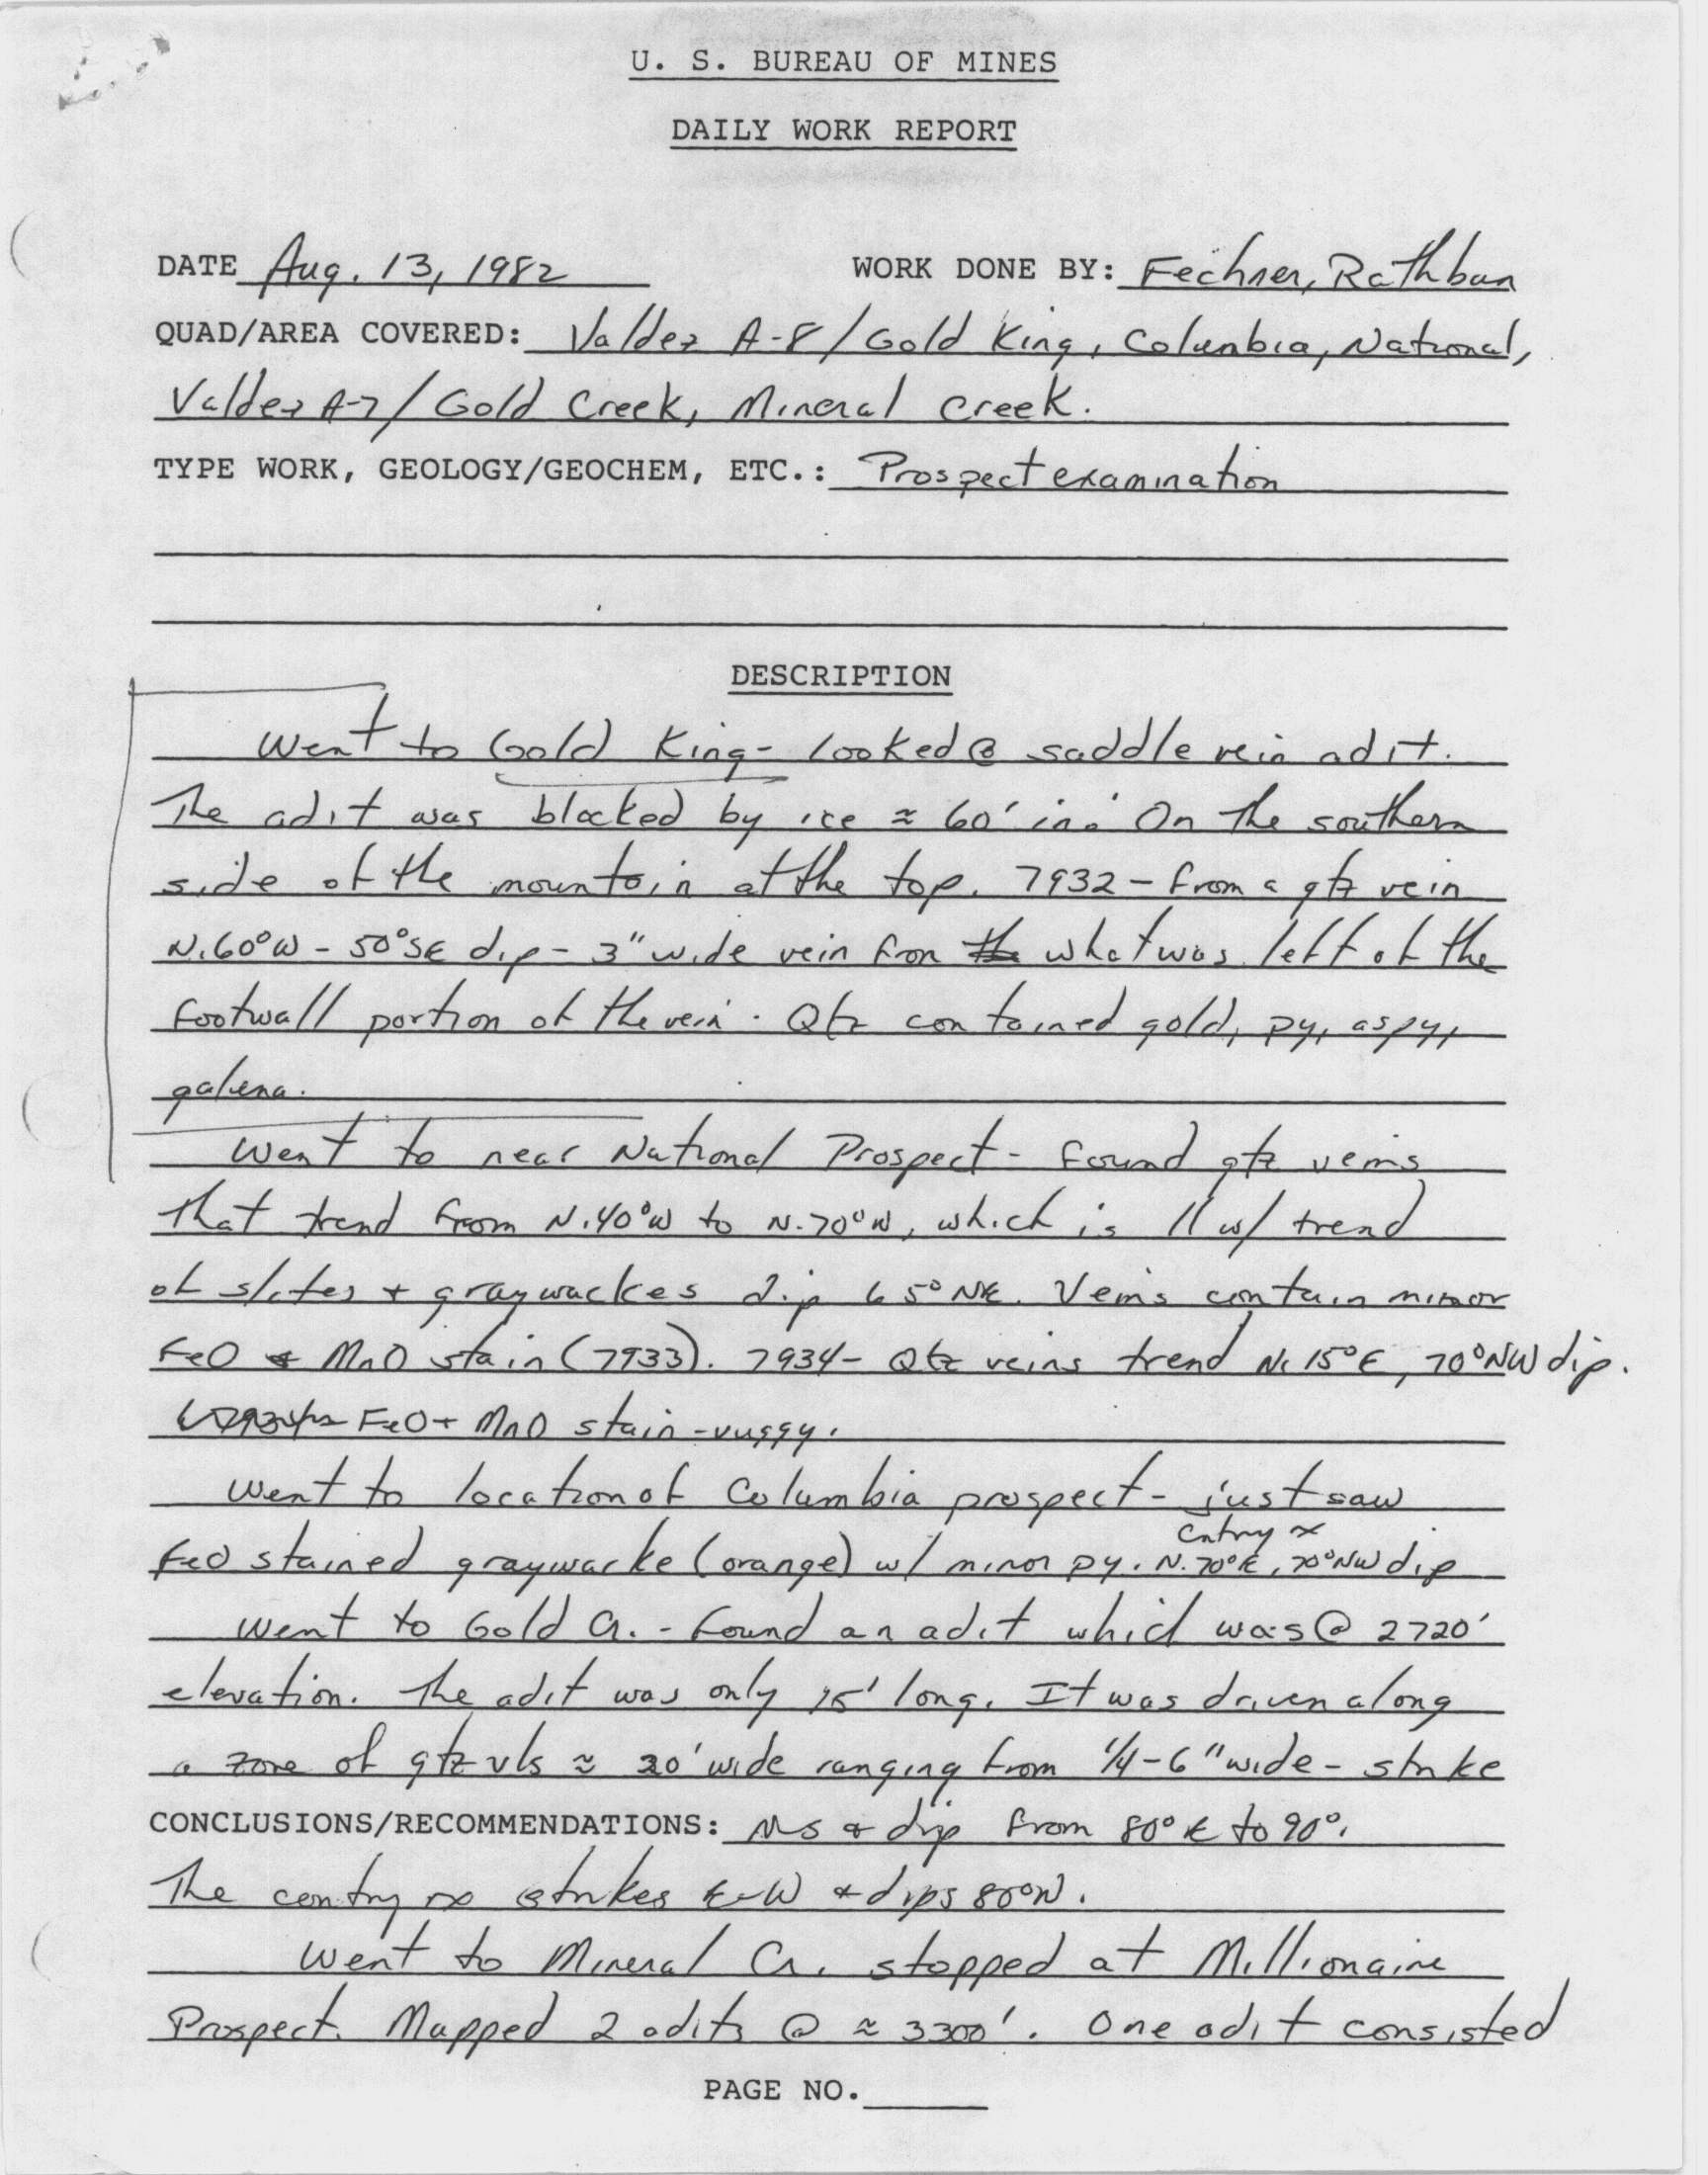 U. S. BUREAU OF MINES
DAILY WORK REPORT
DATE Aug. 13, 1982 WORK DONE BY: Fechner, Rathbun
QUAD/AREA COVERED: Valdez A-8/Gold King, Columbia, National,
Valdez A-7/Gold Creek, Mineral Creek.
TYPE WORK, GEOLOGY/GEOCHEM, ETC.: Prospect examination
DESCRIPTION
Went to Gold King- looked @ saddle vein adit.
The adit was blocked by ice ≈ 60' in. On the southern
side of the mountain at the top. 7932 - from a qtz vein
N.60°W - 50°SE dip - 3" wide vein from the what was left of the
footwall portion of the vein. Qtz contained gold, py, aspy,
galena.
Went to near National Prospect - found qtz veins
that trend from N.40°W to N.70°W, which is // w/ trend
of slates + graywackes dip 65°NE. Veins contain minor
FeO & MnO stain (7933). 7934- Qtz veins trend N.15°E, 70°NW dip.
FeO + MnO stain - vuggy.
Went to location of Columbia prospect - just saw
Cntry rx
FeO stained graywacke (orange) w/ minor py. N.70°E, 70°NW dip
Went to Gold Cr. - found an adit which was @ 2720'
elevation. The adit was only 15' long. It was driven along
a zone of qtz vls ≈ 20' wide ranging from 1/4-6" wide - strike
CONCLUSIONS/RECOMMENDATIONS: NS & dip from 80°E to 90°.
The contry rx strikes E-W & dips 80°N.
Went to Mineral Cr. stopped at Millionaire
Prospect. Mapped 2 adits @ ≈ 3300'. One adit consisted
PAGE NO.